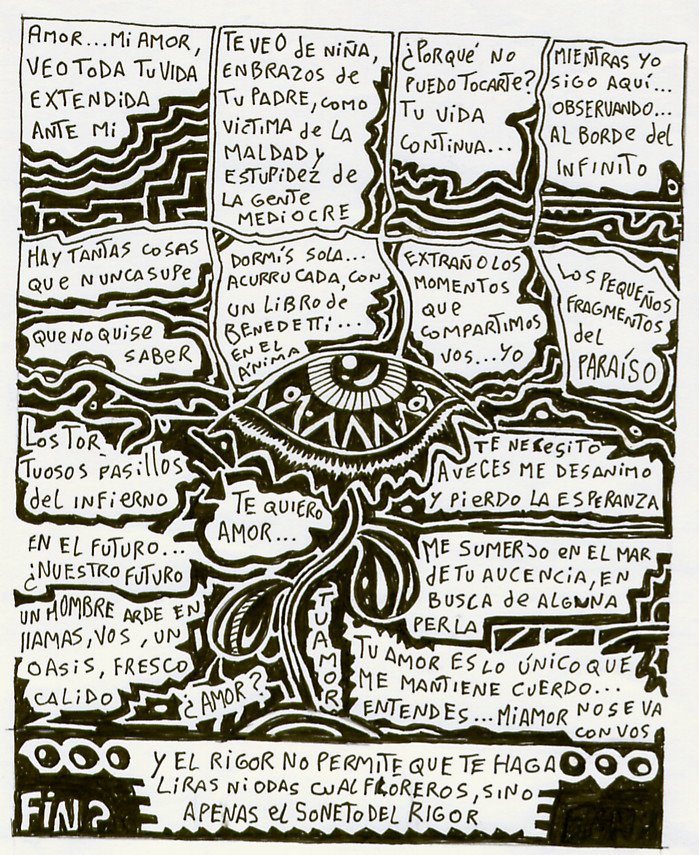 AMOR...MI AMOR,
VEO TODA TU VIDA
EXTENDIDA
ANTE MI
TE VEO de NIÑA,
EN BRAZOS de
TU PADRE, COMO
VICTIMA de LA
MALDAD Y
ESTUPIDEZ de
LA GENTE
MEDIOCRE
¿PORQUÉ NO
PUEDO TOCARTE?
TU VIDA
CONTINUA...
MIENTRAS YO
SIGO AQUÍ...
OBSERVANDO...
AL BORDE del
INFINITO
HAY TANTAS COSAS
QUE NUNCA SUPE
QUE NO QUISE
SABER
DORMÍS SOLA...
ACURRUCADA, CON
UN LIBRO de
BENEDETTI...
EN EL
ÁNIMA
EXTRAÑO LOS
MOMENTOS
QUE
COMPARTIMOS
VOS...YO
LOS PEQUEÑOS
FRAGMENTOS
del
PARAÍSO
LOS TOR
TUOSOS PASILLOS
del INFIERNO
TE QUIERO
AMOR...
TE NECESITO
A VECES ME DESANIMO
Y PIERDO LA ESPERANZA
EN EL FUTURO...
¿NUESTRO FUTURO
ME SUMERJO EN EL MAR
de TU AUCENCIA, EN
BUSCA de ALGUNA
PERLA
UN HOMBRE ARDE EN
llAMAS, VOS, UN
OASIS, FRESCO
CALIDO
¿AMOR?
TU AMOR
TU AMOR ES LO ÚNICO QUE
ME MANTIENE CUERDO...
ENTENDES...MI AMOR NO SE VA
CON VOS
Y EL RIGOR NO PERMITE QUE TE HAGA
LIRAS NI ODAS CUAL FLOREROS, SINO
APENAS el SONETO DEL RIGOR
FiN?